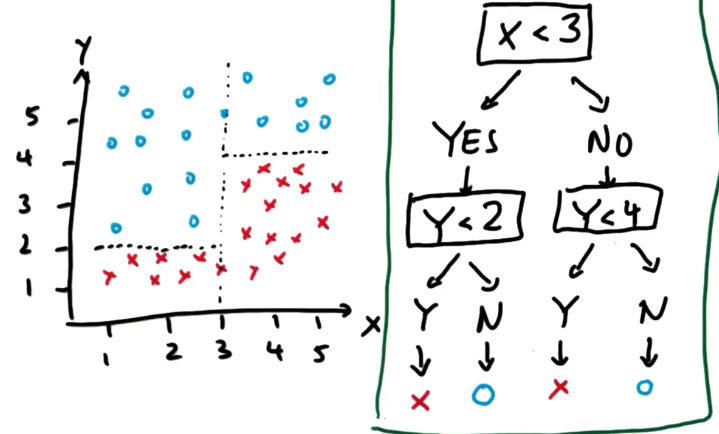 Y
5
4
3
2
1
1 2 3 4 5
X
X < 3
YES NO
Y < 2 Y < 4
Y N Y N
X O X O